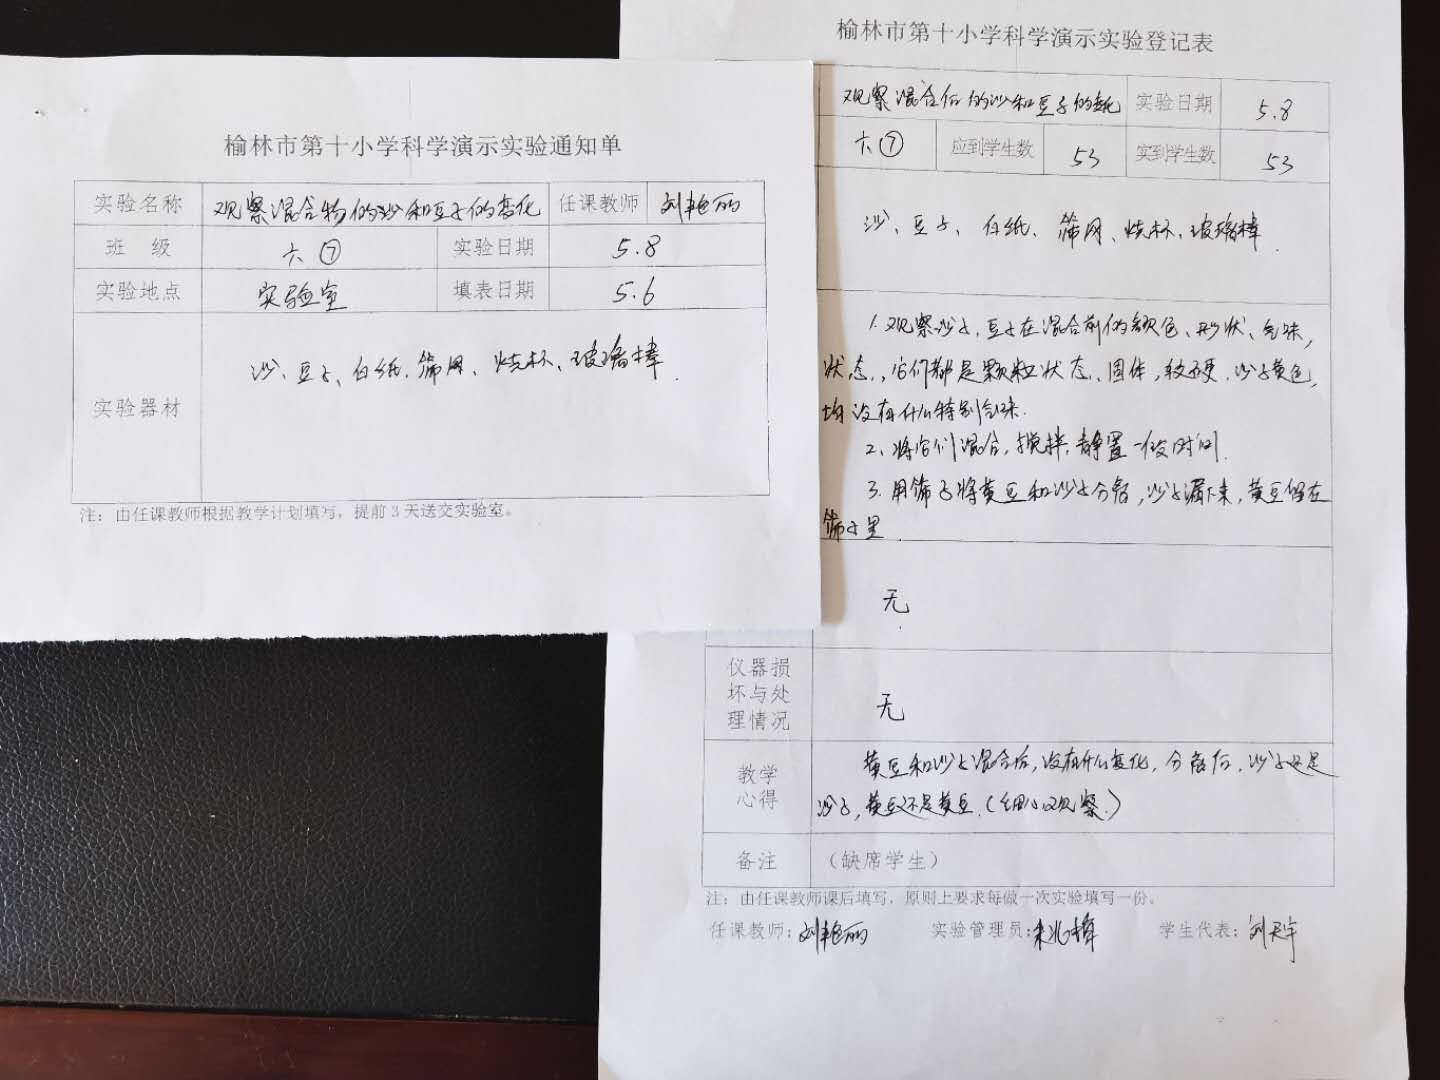 榆林市第十小学科学演示实验通知单
实验名称 观察混合物的沙和豆子的变化 任课教师 刘艳丽
班 级 六⑦ 实验日期 5.8
实验地点 实验室 填表日期 5.6
实验器材 沙、豆子、白纸、筛网、烧杯、玻璃棒.
注：由任课教师根据教学计划填写，提前3天送交实验室。
榆林市第十小学科学演示实验登记表
观察混合后的沙和豆子的变化 实验日期 5.8
六⑦ 应到学生数 53 实到学生数 53
沙、豆子、白纸、筛网、烧杯、玻璃棒.
1.观察沙子,豆子在混合前的颜色、形状、气味,
状态,它们都是颗粒状态、固体,较硬.沙子黄色,
均没有什么特别气味.
2、将它们混合,搅拌,静置一段时间.
3.用筛子将黄豆和沙子分离,沙子漏下来,黄豆留在
筛子里.
无
仪器损
坏与处
理情况
无
教学
心得
黄豆和沙子混合后,没有什么变化,分离后,沙子还是
沙子,黄豆还是黄豆.(细心观察.)
备注 （缺席学生）
注：由任课教师课后填写，原则上要求每做一次实验填写一份。
任课教师：刘艳丽 实验管理员： 学生代表：